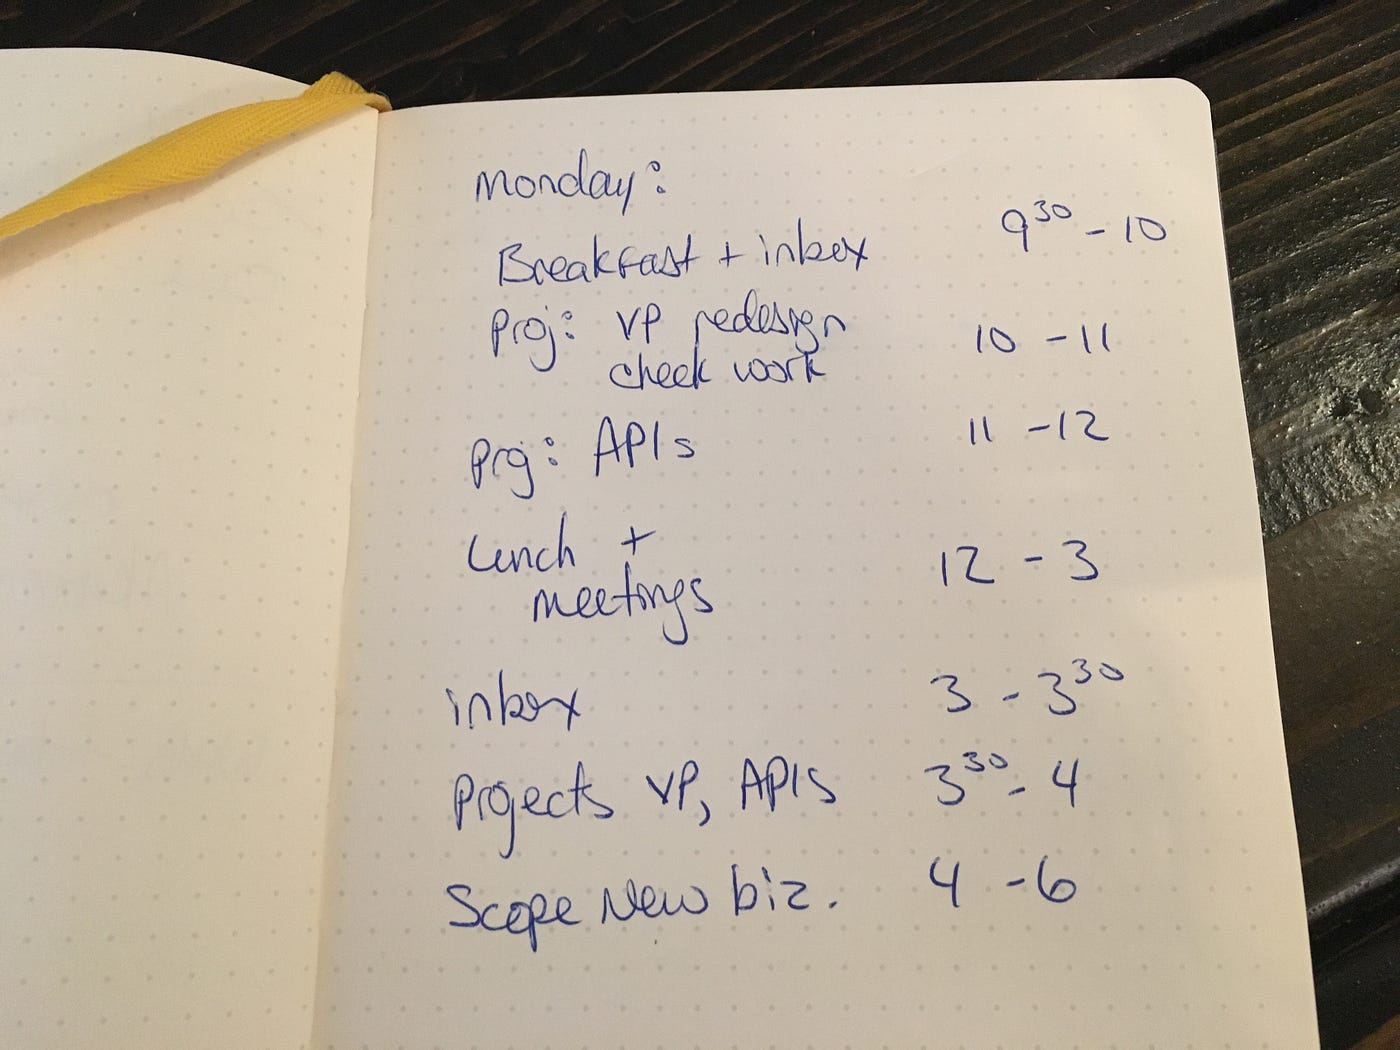 Monday:
Breakfast + inbox 9³⁰ - 10
Proj: VP redesign 10 - 11
check work
Proj: APIs 11 - 12
Lunch + 12 - 3
meetings
inbox 3 - 3³⁰
Projects VP, APIs 3³⁰ - 4
Scope New biz. 4 - 6